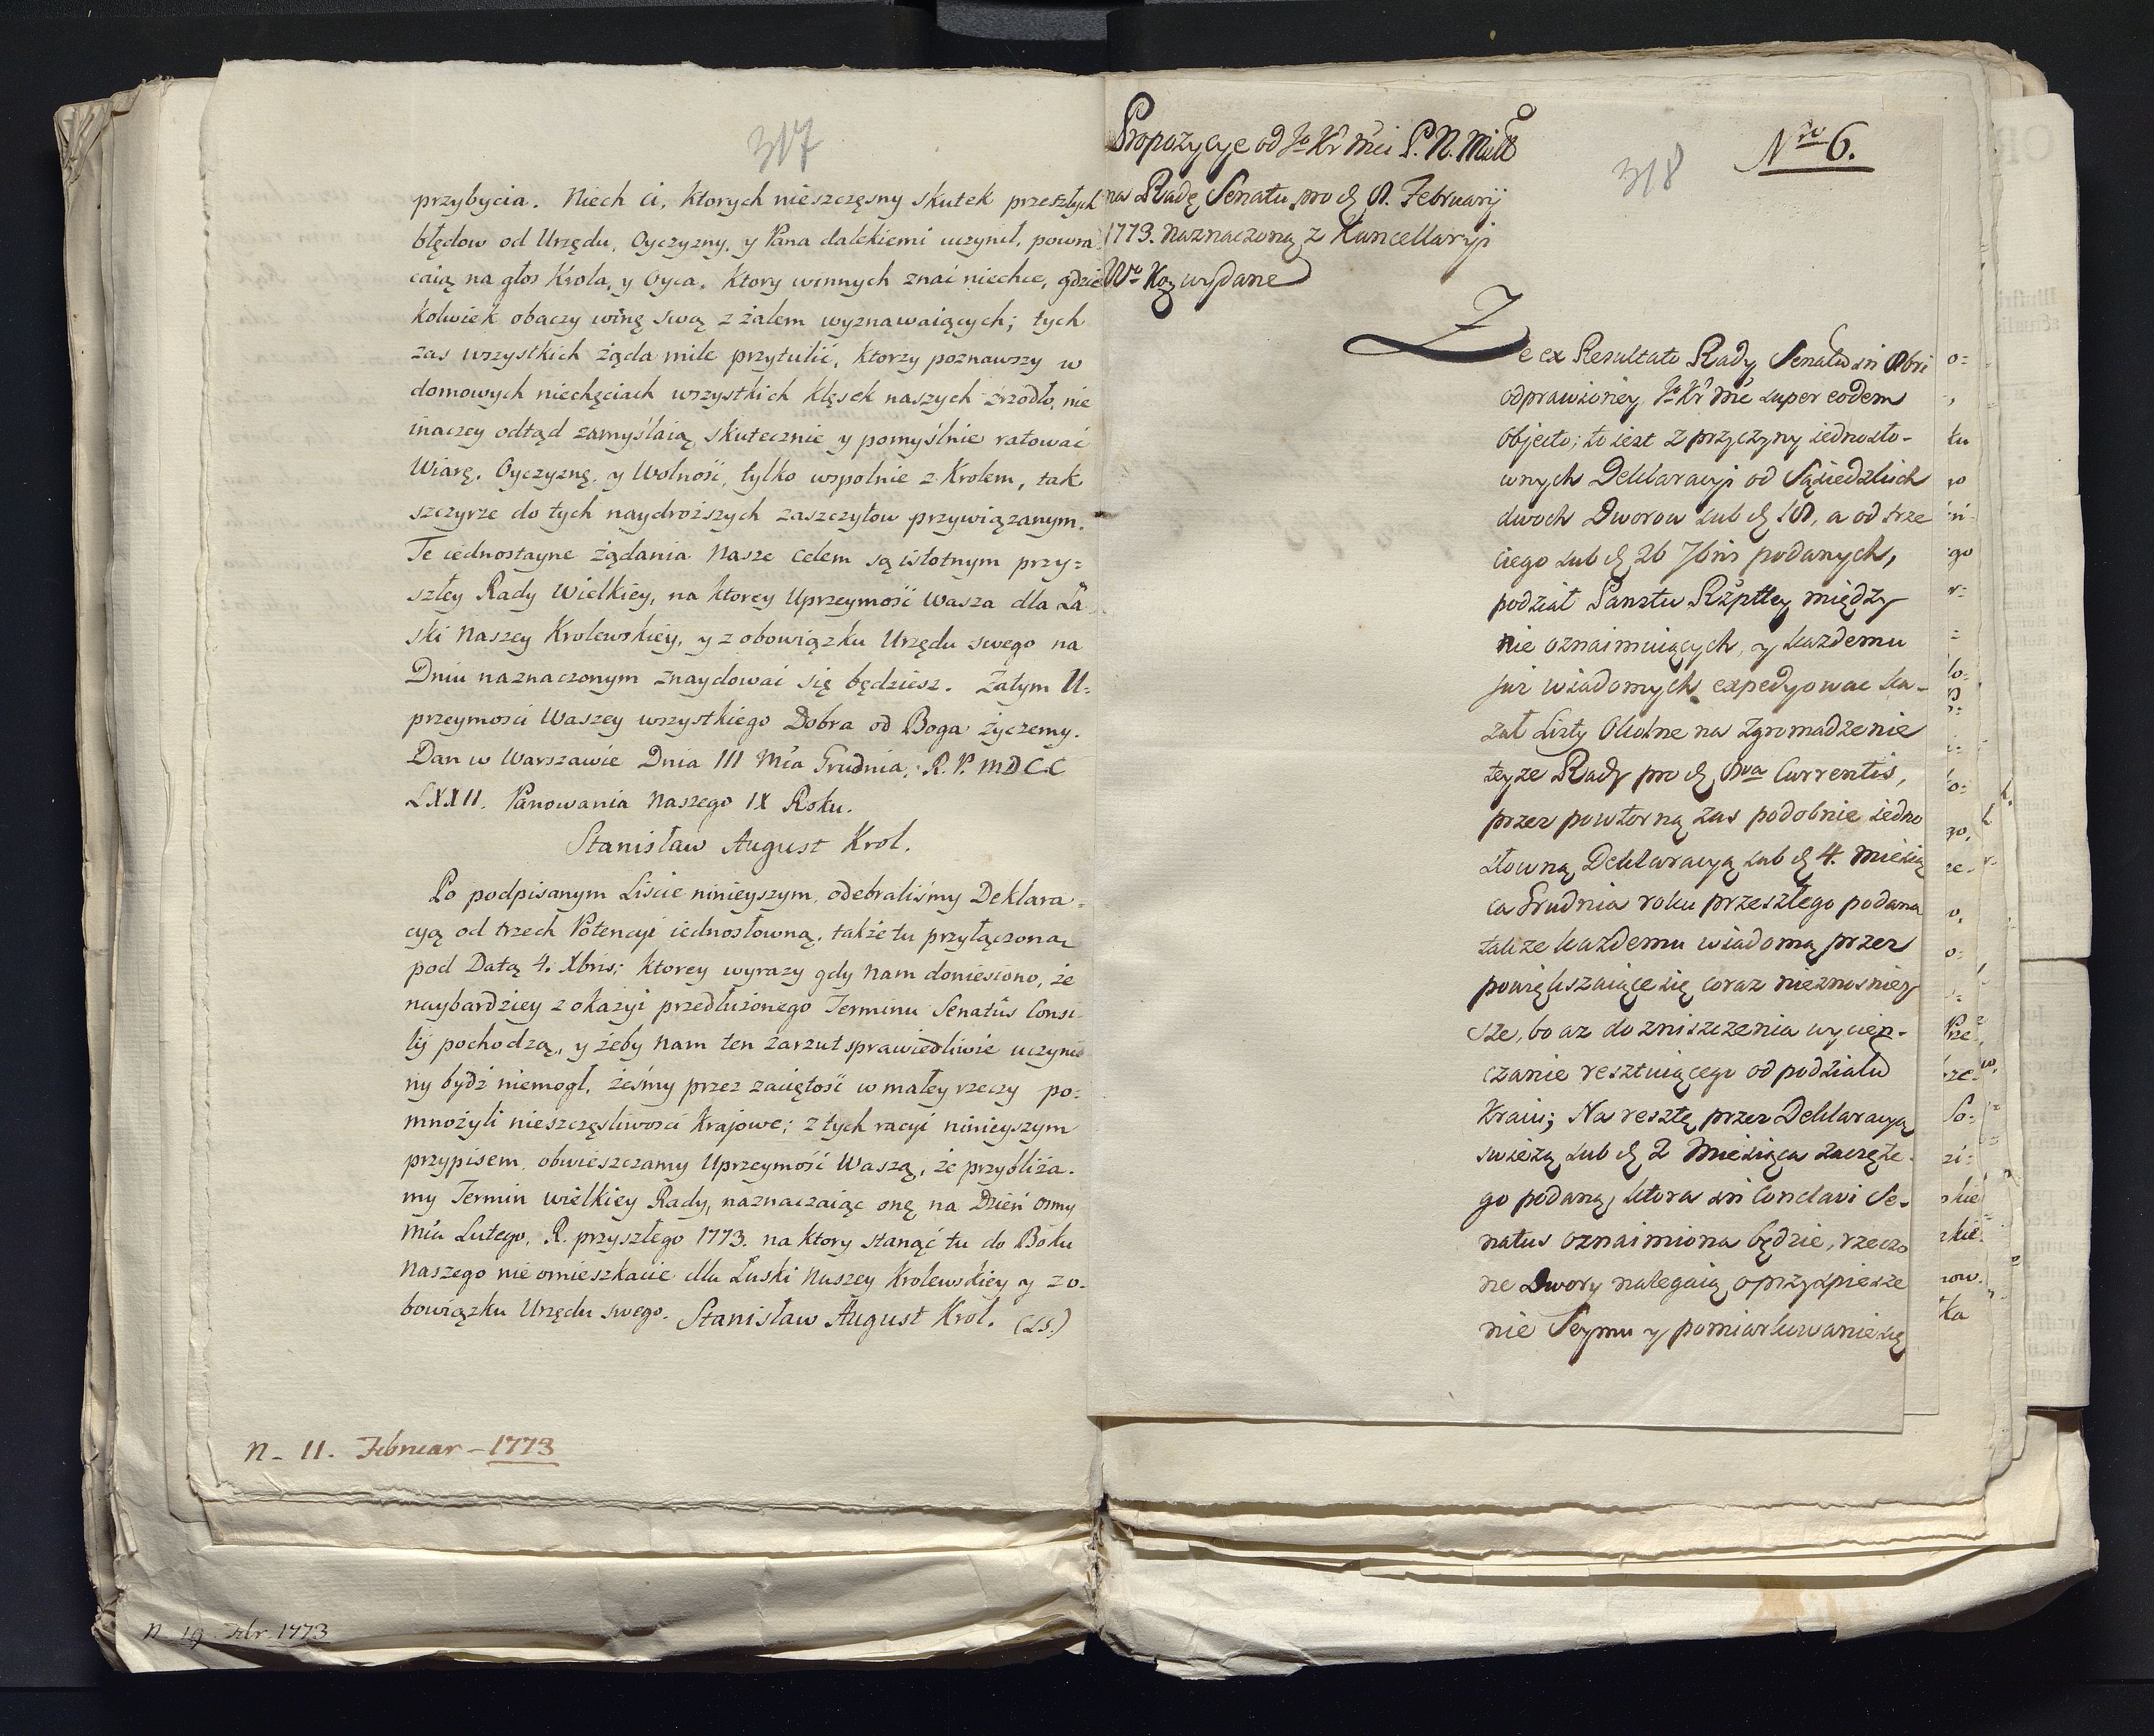 317
przybycia. Niech ci, ktorych nieszczęsny skutek przeszłych
błędow od Urzędu, Oyczyzny, y Pana dalekiemi uczynił, powra
caią na głos Krola, y Oyca, ktory winnych znać niechce, gdzie
kolwiek obaczy winę swą z żalem wyznawaiących; tych
zas wszystkich żąda mile przytulić, ktorzy poznawszy w
domowych niechęciach wszystkich klęsek naszych źrzodło, nie
inaczey odtąd zamyślaią skutecznie y pomyślnie ratować
Wiarę, Oyczyznę, y Wolność, tylko wspolnie z Krolem, tak
szczyrze do tych naydroższych zaszczytow przywiązanym.
Te iednostayne żądania Nasze celem są istotnym przy=
szłey Rady Wielkiey, na ktorey Uprzeymość Wasza dla Ła
ski Naszey Krolewskiey, y z obowiązku Urzędu swego na
Dniu naznaczonym znaydować się będziesz. Zatym U=
przeymosci Waszey wszystkiego Dobra od Boga życzemy.
Dan w Warszawie Dnia III Mca Grudnia, R. P. MDCC
LXXII. Panowania Naszego IX Roku.
Stanisław August Krol.
Po podpisanym Liscie ninieyszym, odebraliśmy Deklara=
cyą od trzech Potencyi iednosłowną, także tu przyłączoną
pod Datą 4. Xbris; ktorey wyrazy gdy Nam doniesiono, że
naybardziey z okazyi przedłużonego Terminu Senatûs Consi
lij pochodzą, y żeby Nam ten zarzut sprawiedliwie uczynio
ny bydź niemogł, żeśmy przez zaciętość w małey rzeczy po=
mnożyli nieszczęsliwosci Krajowe; z tych racyi ninieyszym
przypisem, obwieszczamy Uprzeymość Waszą, że przybliża=
my Termin wielkiey Rady, naznaczaiąc onę na Dzień osmy
Mca Lutego, R. przyszłego 1773. na ktory stanąć tu do Boku
Naszego nieomieszkacie dla Łaski Naszey Krolewskiey y z o=
bowiązku Urzędu swego. Stanisław August Krol. (L.S.)
N. 11. Februar - 1773
N 19 Febr 1773
Propozycye od Jo Kr Mci P. N. Miłło
318
Nro 6.
na Radę Senatu pro d. 8. Februarij
1773. naznaczoną z Kancellaryi
Wo Ko wydane
Ze ex Resultato Rady Senatu in 8bri
odprawioney Jo Kr Mć super eodem
objecto; to iest z przyczyny iednosło-
wnych Deklaracyi od Sąsiedzkich
dwoch Dworow sub d. 18, a od trze
ciego sub d. 26 7bris podanych,
podział Panstw Rzptey między
nie oznaimuiących, y każdemu
już wiadomych expedyować ka-
zał Listy Okolne na zgromadzenie
teyże Rady pro d. 8va Currentis,
przez powtorną zas podobnie iedno
słowną Deklaracyą sub d. 4. Miesią
ca Grudnia roku przeszłego podaną
także każdemu wiadomą przez
powiększaiące się coraz nieznosniey
sze, bo az do zniszczenia wycień-
czanie resztuiącego od podziału
Kraiu; Na resztę przez Deklaracyą
swieżą sub d. 2 Miesiąca zaczęte-
go podaną, ktora in Conclavi Se-
natus oznaimiona będzie, rzeczo
ne Dwory nalegaią o przyspiesze
nie Seymu y pomiarkowanie się